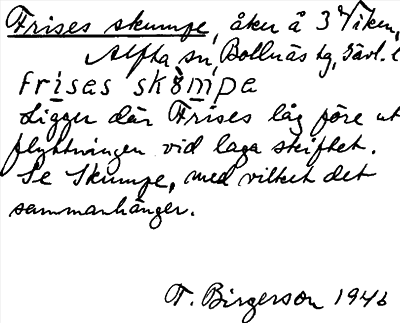 Frises skumpe, åker å 3 Viken,
Alfta sn, Bollnäs tg, Gävl. l
frises skömpe
Ligger där Frises låg före ut
flyttningen vid laga skiftet.
Se Skumpe, med vilket det
sammanhänger.
T. Birgerson 1946